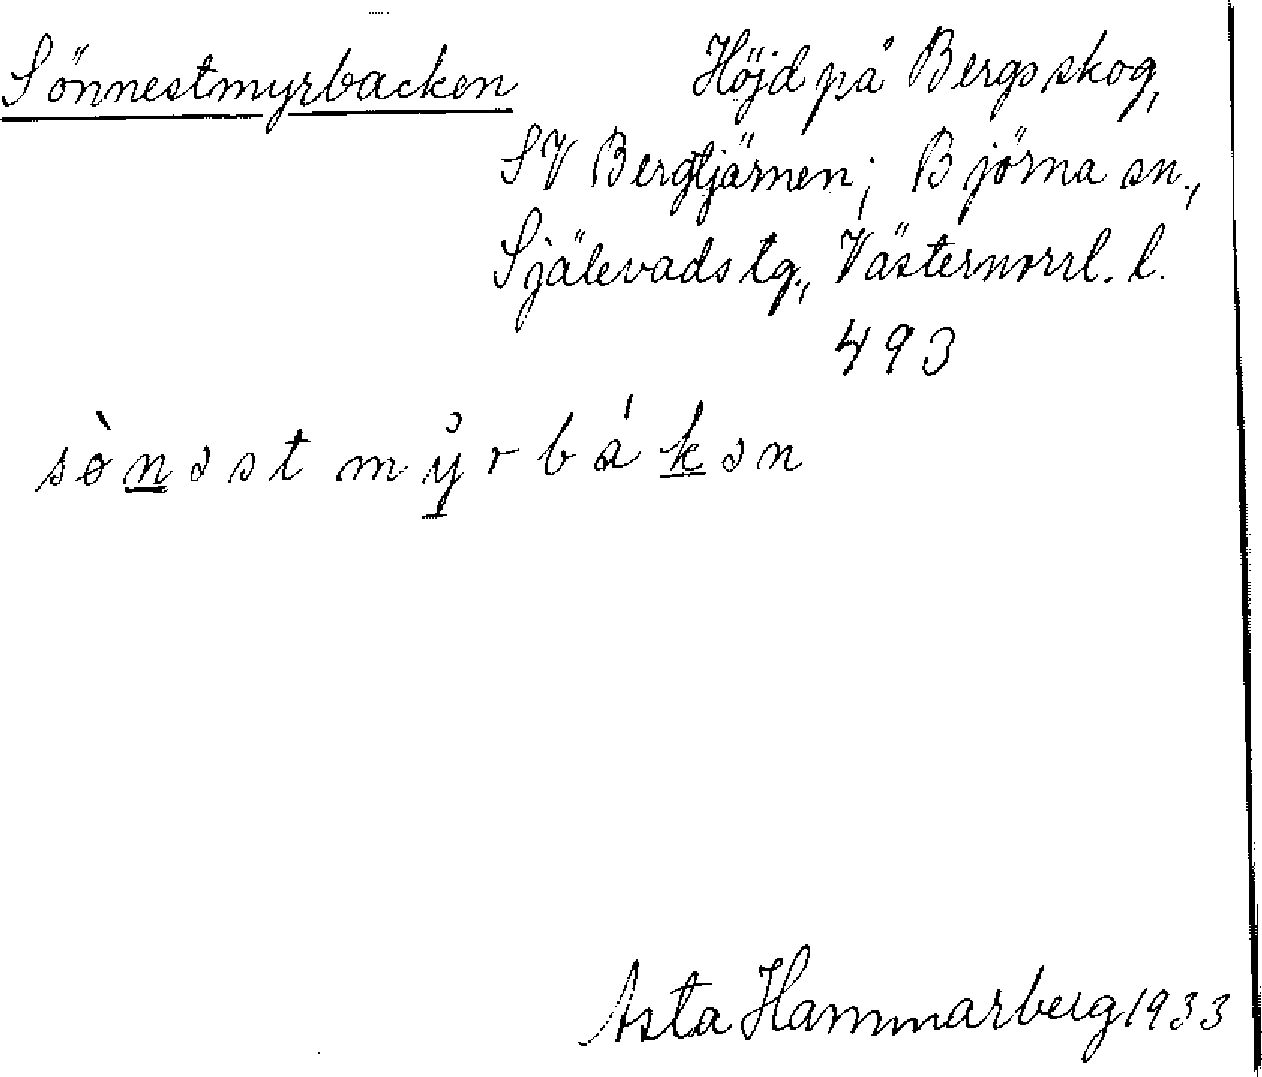 Sönnestmyrbacken Höjd på Bergsskog,
SV Bergtjärnen; Björna sn.,
Själevads tg., Västernorrl. l.
493
sønəst myrbakən
Asta Hammarberg 1933